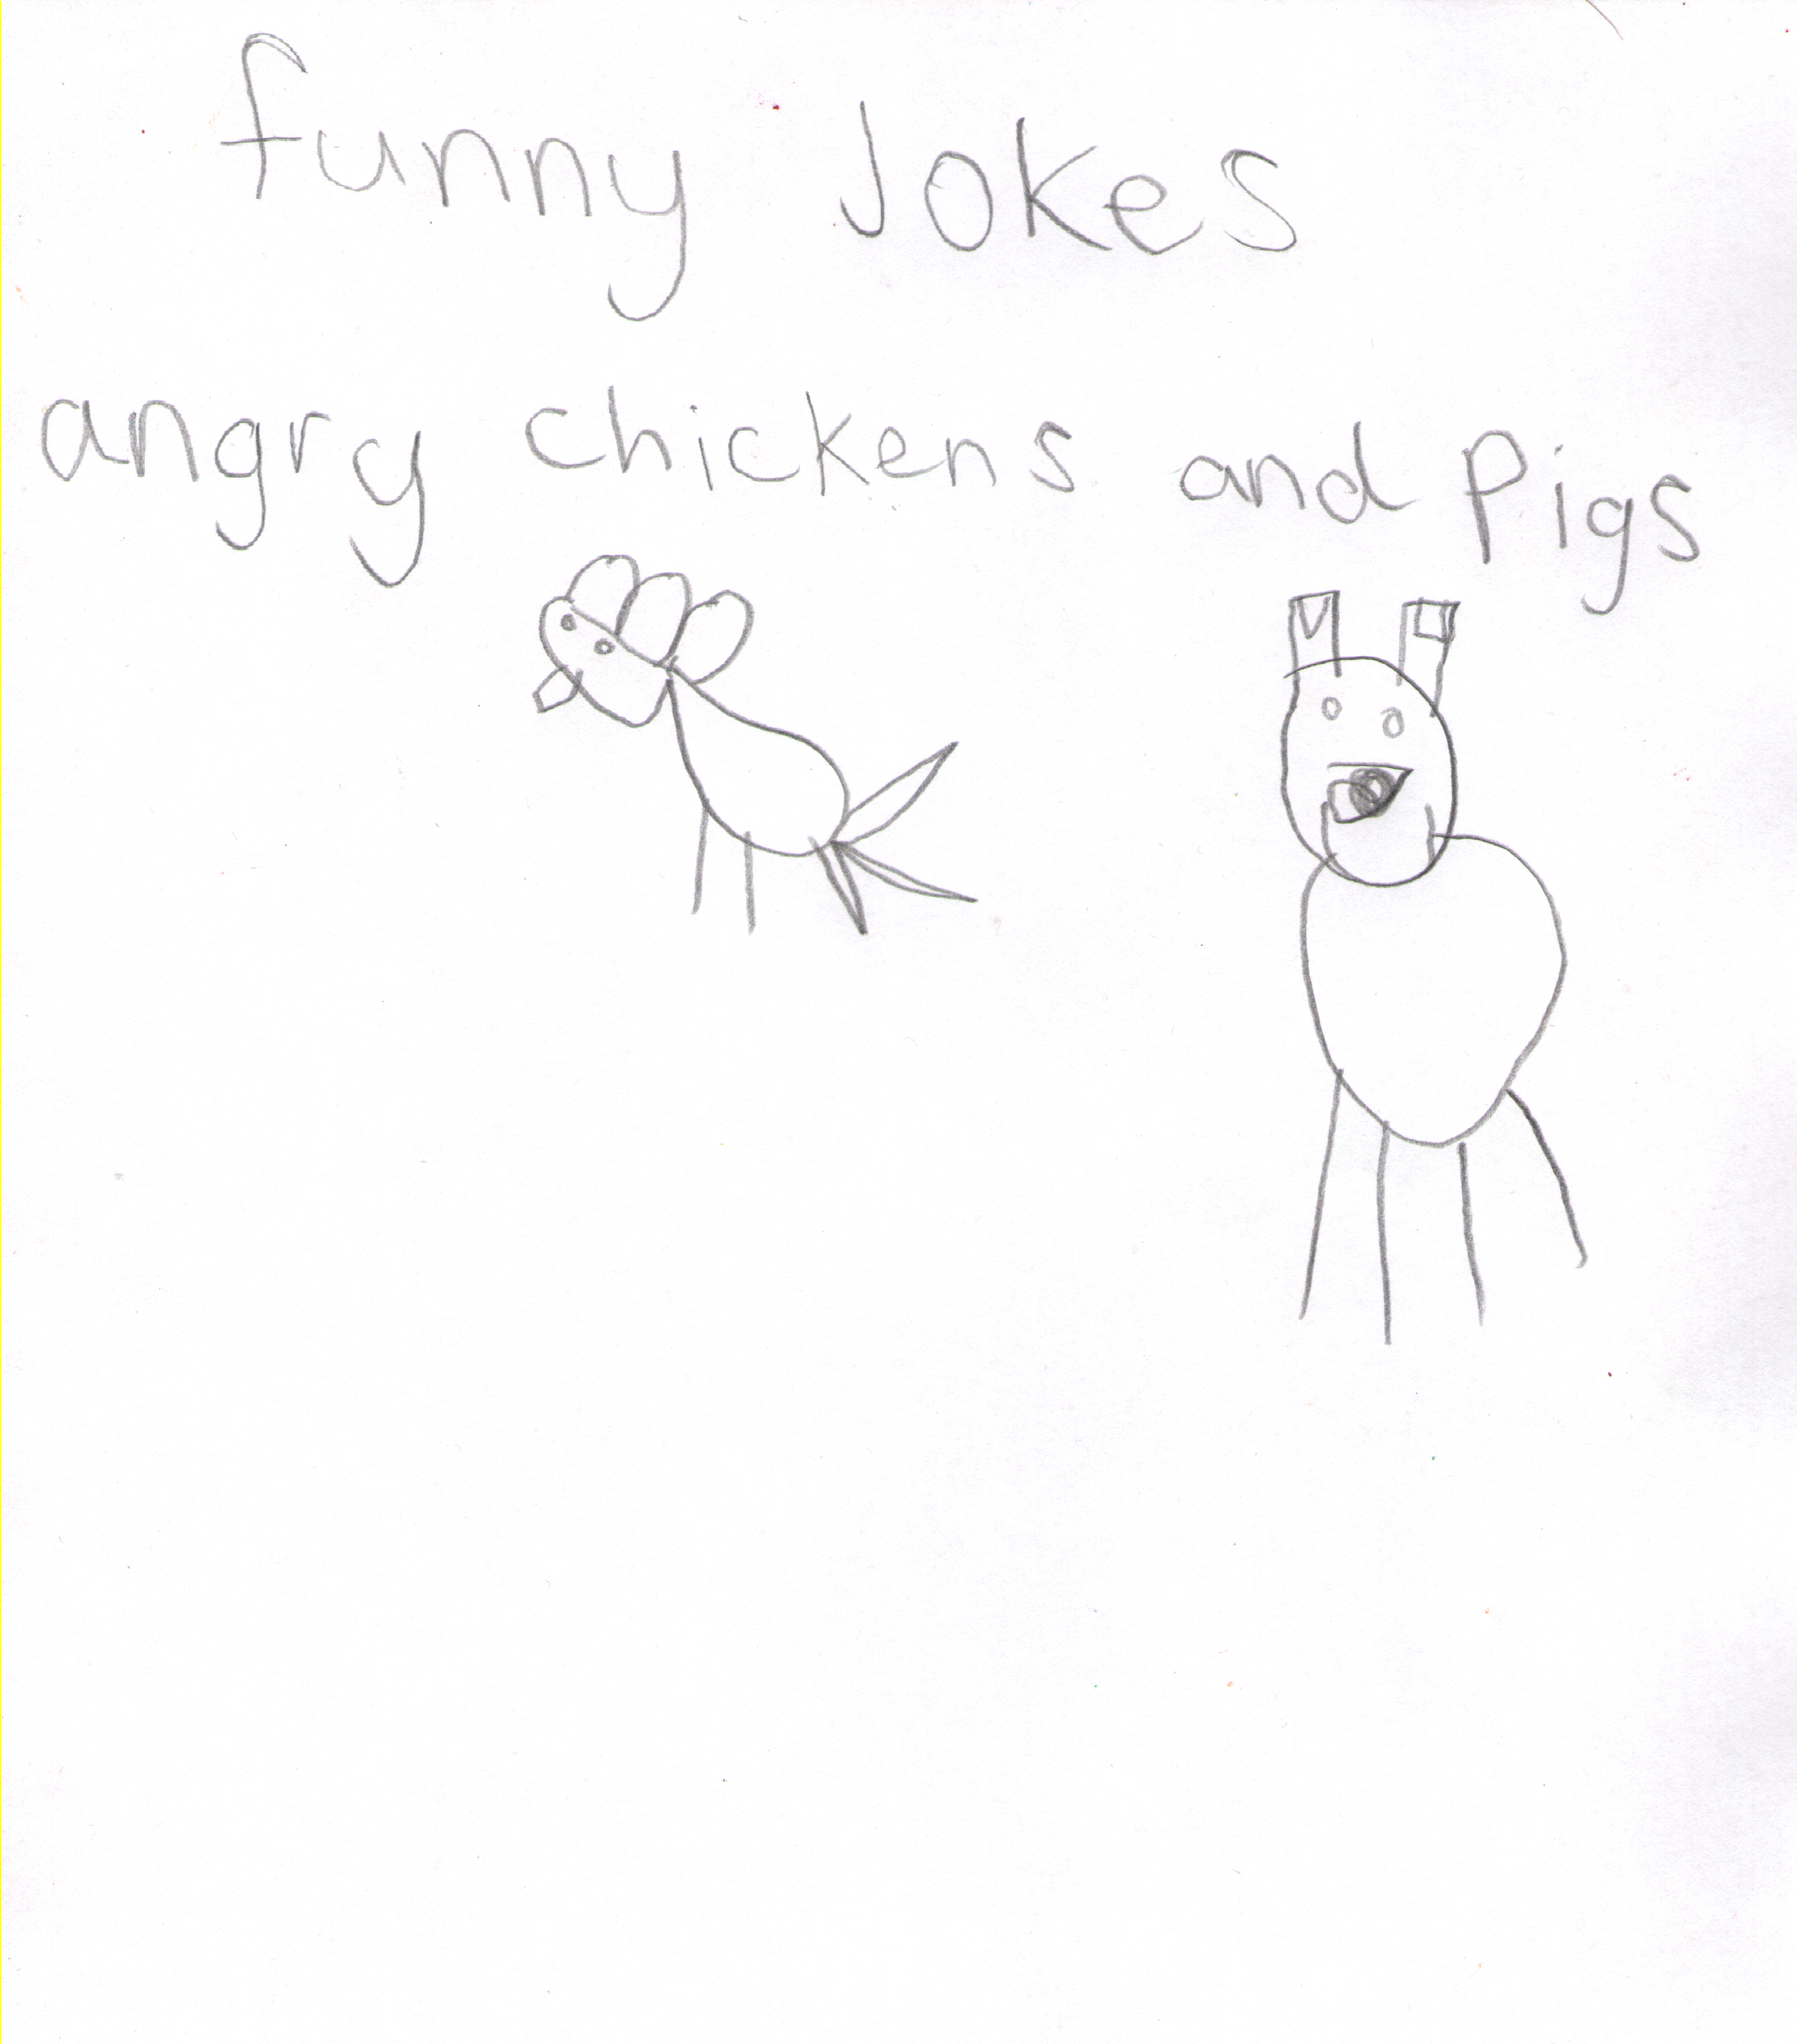 funny Jokes
angry chickens and Pigs